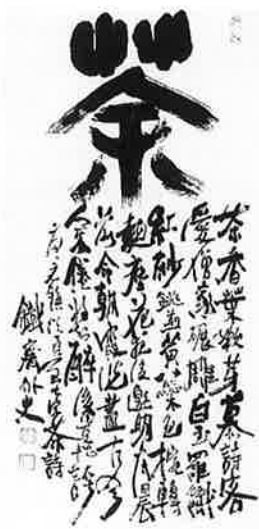 茶
茶香葉嫩芽慕詩客
愛僧家碾雕白玉羅織
紅砂銚煎黃蕊色椀轉
麴塵花夜後邀明月晨
前命朝霞洗盡古今
人不倦將知醉後豈堪誇
茶詩
鐵齋外史